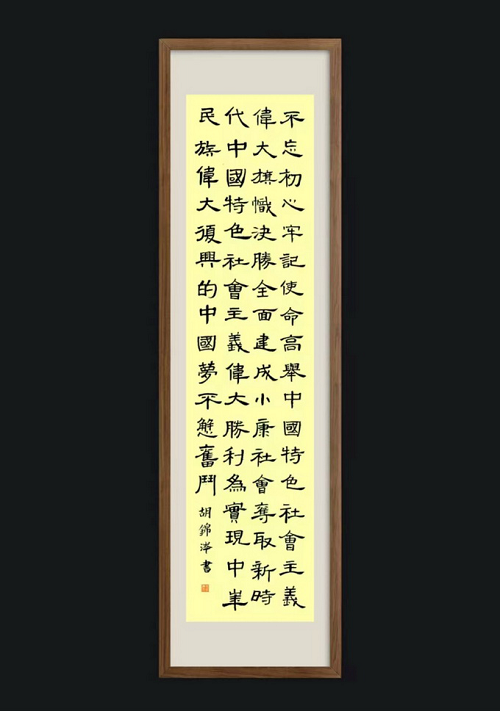 不忘初心牢記使命高舉中國特色社會主義
偉大旗幟決勝全面建成小康社會奪取新時
代中國特色社會主義偉大勝利為實現中華
民族偉大復興的中國夢不懈奮鬥
胡錦 書